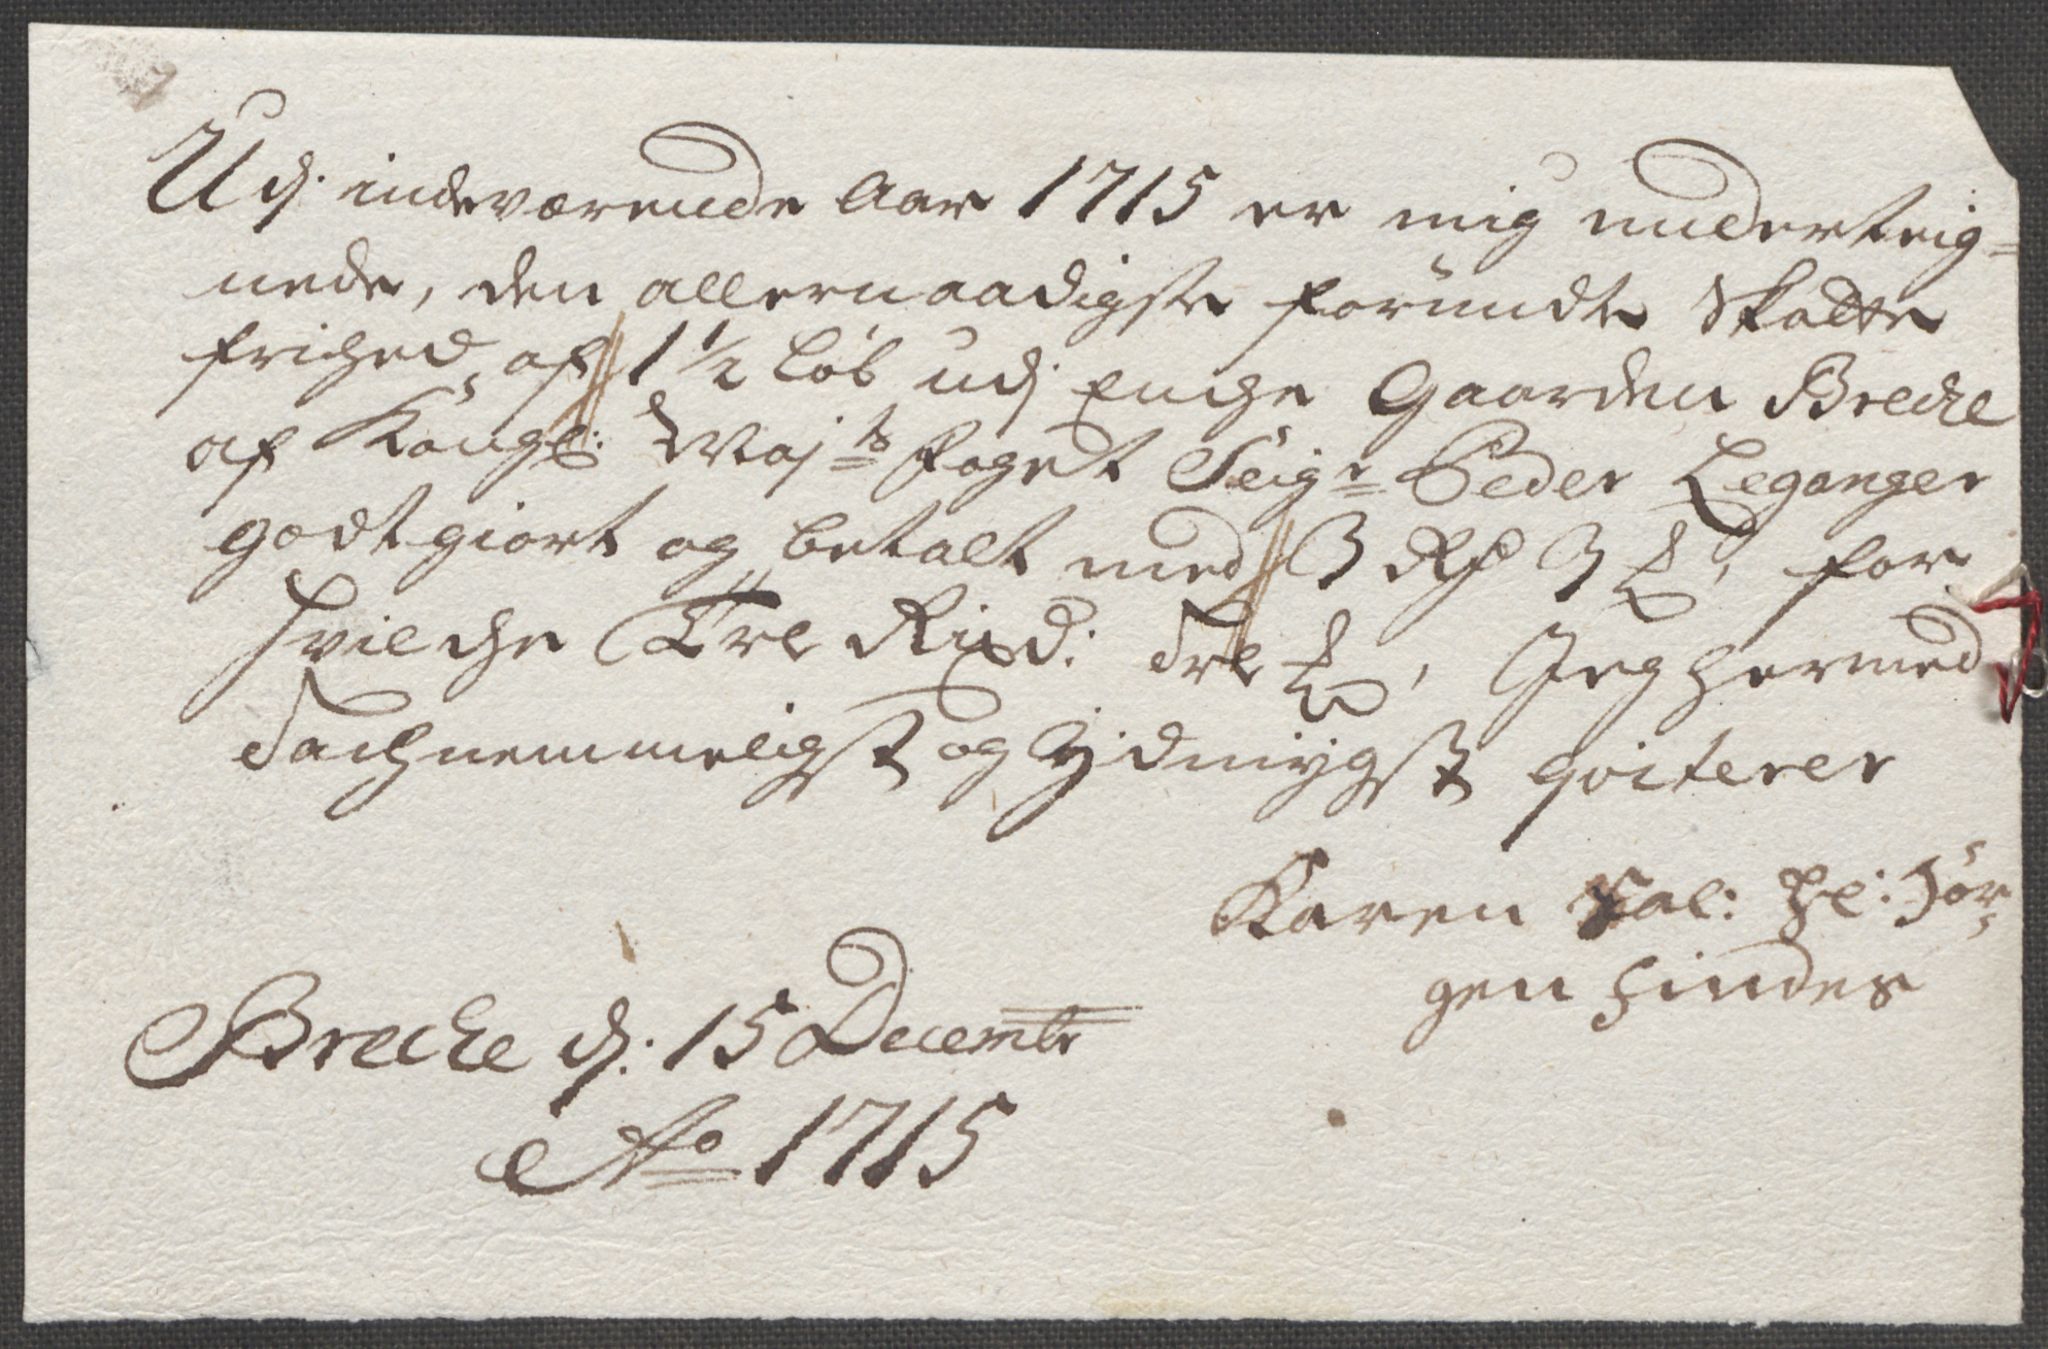 Udj indeværende Aar 1715 er mig underteig-
nede, den allernaadigste forundte Skatte
frihed af 1 1/2 Løb udj Enche Gaarden Breche
af Kongl: Maj:ts Foget Seig:r Peder Leganger
godtgiort og betalt med 3 Rd 3 ß, for
hvilche Tre Rixd: Tre ß, Jeg hermed
Tachnemmeligst og Ydmygst qviterer
Karen Sal: Hl: Jør-
gen Hindes
Breche dj: 15 Decembr
Ao 1715